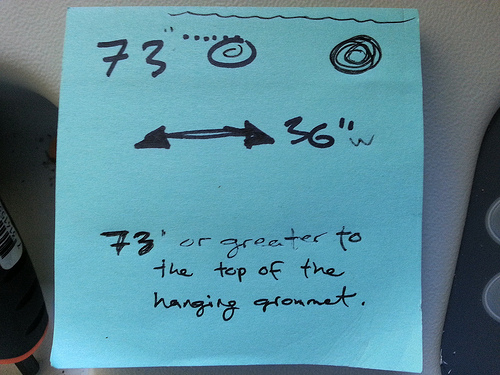 73"
36" w
73" or greater to
the top of the
hanging grommet.